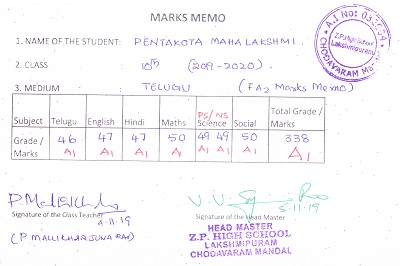 MARKS MEMO
A.I No: 03
Z.P. High School
Lakshmipuram
CHODAVARAM
1. NAME OF THE STUDENT: PENTAKOTA MAHA LAKSHMI.
2. CLASS 10th (2019-2020).
3. MEDIUM : TELUGU (FA2 Marks Memo)
Subject Telugu English Hindi Maths PS/NS Science Social Total Grade / Marks
Grade / Marks 46 47 47 50 49 49 50 338
A1 A1 A1 A1 A1 A1 A1 A1
Signature of the Class Teacher
4.11.19
(P MALLIKHARJUNA RAO)
Signature of the Head Master
11.19
HEAD MASTER
Z.P. HIGH SCHOOL
LAKSHMIPURAM
CHODAVARAM MANDAL